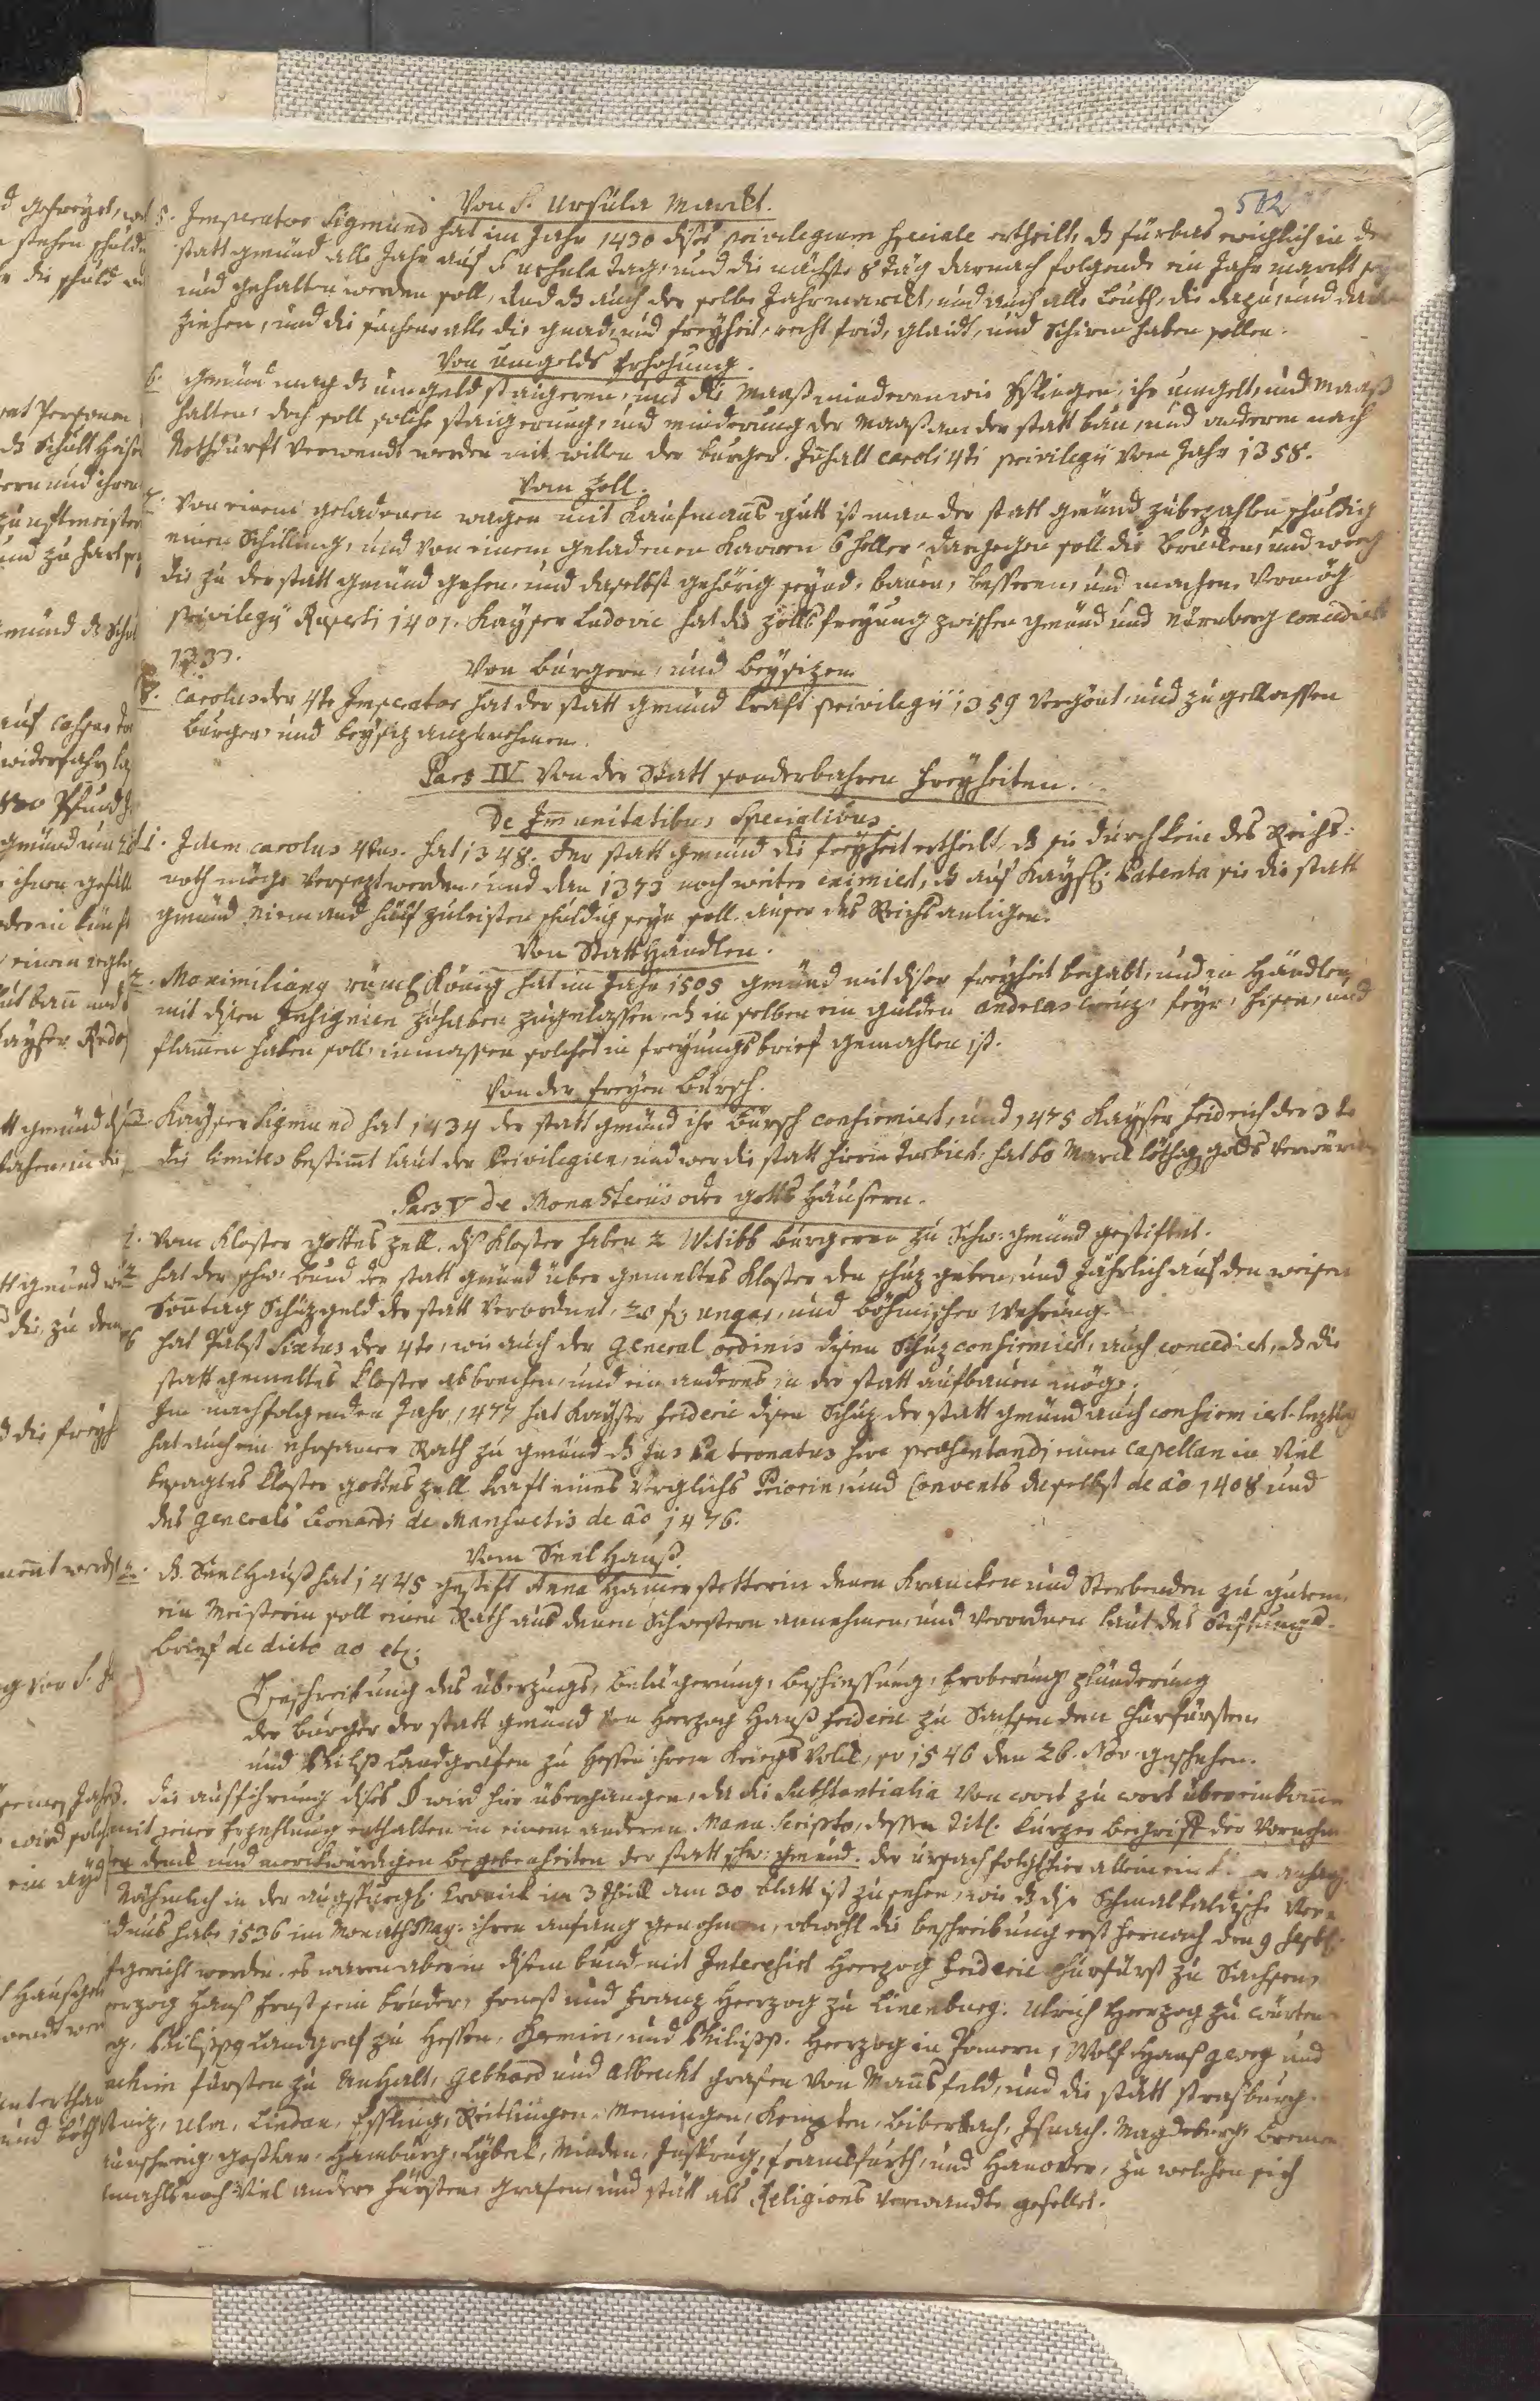 502
Von S. Ursula Marckt.
5. Imperator Sigmund hat im Jahr 1430 dises privilegium speciale ertheilt, dz fürbas ewichlich in der
statt gmünd alle Jahr auf S Urshula tag, und die nächste 8 täg darnach folgende ein Jahr marckt
und gehalten werden soll, und dz auch der selbe Jahrmarckt, und auch alle leuth, die dazu, und
ziehen, und die suchen, alle die gnad, und freyheit, recht frid, glaidt, und Schirm haben sollen.
Von umgelds Erhohung.
6. gmünd mag dz umgeld staigeren, und die Maaß minderen wie Eßlingen, ihr umgelt, und Maaß
halten, doch soll solche staigerung, und minderung der Maaß an der statt bau, und anderem nach
Nothdurft verwendt werden mit willen der burger. Inhalt caroli 4ti privilegii vom Jahr 1358.
Vom Zoll.
7. Von einem geladenen wagen mit Kaufmans gutt ist man der statt gmünd zubezahlen schuldig
einen Schilling, und von einem geladenen Karren 6 heller, dargegen soll die Brucken, und weeg
die zu der statt gmünd gehen, und daselbst gehörig seynd, bauen, besseren, und machen, vermög
privilegii Ruperti 1401. Kayser Ludovic hat die zollsfreyung zwischen gmünd und Nürnberg concediert
1333.
Von burgern, und beysizen
8. Carolus der 4te Imperator hat der statt gmünd kraft privilegii 1359 vergönt, und zugellassen
burger, und beysiz anzunehmen.
Pars IV Von der Statt sonderbahren Freyheiten.
De Immunitatibus Specialibus.
1. Idem carolus 4tus. hat 1348. der statt gmünd die freyheit ertheilt, dz sie durch keine des Reichs:
noth möge versezt werden, und den 1373 noch weiter eximiert, dz auf Kaysl: Patenta sie die statt
gmünd niemand hilf zuleisten schuldig seyn soll, auser des Reichs anligen.
Von Statt Händlen.
2. Maximilianus römisch König hat im Jahr 1505 gmünd mit diser freyheit begabt, und in Händlen
mit disen Insignien zuhaben zugelassen, dz in selben ein gulden andreas creuz, feyr, Eisen, und
flamen haben soll, inmassen solches in freyungs brief gemahlen ist.
Von der freyen bürsch.
3. Kayser Sigmund hat 1434 der statt gmünd ihr bürsch confirmiert, und 1475 Kayser Fridrich der 3te
die limites bestimt laut der Privilegien, und wer die statt hierin turbiert, hat 60 Marck löthig golds verwürckt
Pars V de Monasteriis oder Gotts Häusern.
1. Vom Kloster gottes zell. dz Kloster haben 2 Wittib burgeren zu Schw: gmünd gestiftet.
hat der schw: bund der statt gmünd über gemeltes Kloster den schuz geben, und Jährlich auf den weisen
Sontag Schuzgeld der statt verordnet, 20 fl: ungar, und böhmischer Wehrung.
hat Pabst Sixtus der 4te, wie auch der General ordinis disen Schuz confirmiert, auch concediert, dz die
statt gemeltes kloster abbrechen, und ein anderes in der statt aufbauen möge,
Im nachfolgenden Jahr 1477 hat Kayser Frideric disen Schuz der statt gmünd auch confirmiert. leztlich
hat auch ein ehrsamer Rath zu gmünd dz Jus Patronatus sive praesentandi einen Capellan in viel
besagtes Kloster gottes zell kraft eines verglichs Priorin, und Convents daselbst de ao 1408 und
des Generals Leonardi de Mansuetis de ao 1476.
Vom Seel Hauß.
2. dz Seelhauß hat 1445 gestift Anna Hamerstetterin denen Krancken und Sterbenden zu gutem
ein Meisterin soll einen Rath aus denen Schwestern annehmen, und verordnen laut des Stiftungs-
brief de dicto ao etc.
Beschreibung des überzugs, belägerung, beschiessung, Eroberung, plünderung
der burger der statt gmünd von Herzog Hanß frideric zu Sachsen den Churfürsten
und Philipp Landgrafen zu Hessen ihrem Kriegs Volck, so 1546 den 26. Nov. geschehen.
die ausführung dises § wird hier übergangen, da die substantialia von wort zu wort übereinkomen
mit jener Erzehlung enthalten in einem anderen Manuscripto, dessen Titl. kurzer begriff der vornehm
denck und merckwürdigen begebenheiten der statt schw: gmünd. der ursach folgt hier allein ein anhang.
Nähmlich in der augspurgl: Cronick im 3 theill am 30 blatt ist zu sehen, wie dz dise Schmalkaldische
habe 1536 im Monath May: ihren anfang genohmen, obwohl die beschreibung erst hernach den 9
gericht worden. es waren aber in disem bund mit Interessiert Herzog Frideric Churfürst zu Sachsen,
Herzog Hans Ernst sein bruder, Ernest und Franz Herzog zu Linenburg. Ulrich Herzog zu würten
Philippus Landgraf zu Hessen, Barnim, und Philipp. Herzog in Pomern, Wolf, Hans georg und
Fürsten zu Anhalt, Gebhard und Albrecht grafen von Mansfeld, und die stätt strasburg
Ulm, Lindau, Eßling, Reitlingen, Memingen, Kempten, biberach, Isnach, Magdeburg, Bremen
goßlar, Hamburg, Lybeck, Minden, frankfurth, und Hanover, zu welchen sich
noch viel andere Fürsten, grafen, und stätt als Religions verwandte gesellet.